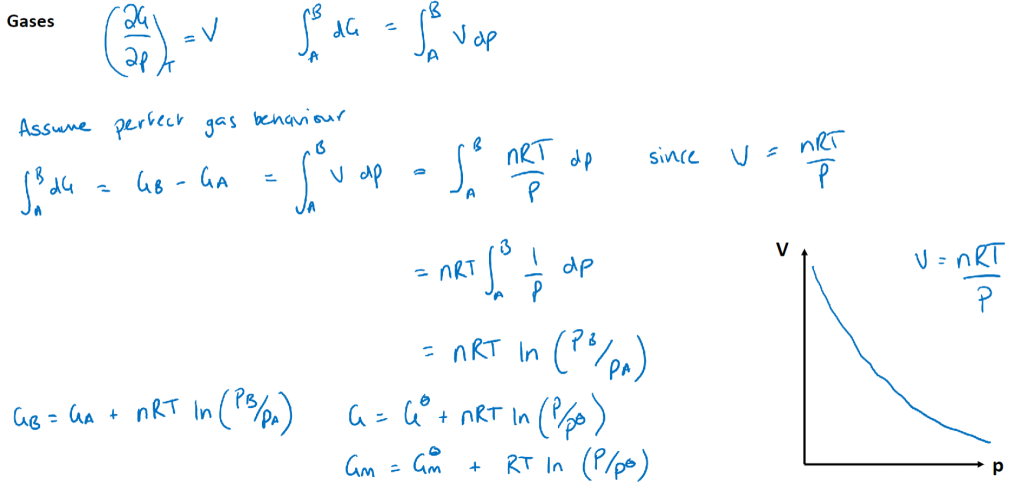 Gases (∂G/∂p)_T = V ∫_A^B dG = ∫_A^B V dp
Assume perfect gas behaviour
∫_A^B dG = G_B - G_A = ∫_A^B V dp = ∫_A^B nRT/P dp since V = nRT/P
= nRT ∫_A^B 1/P dp
= nRT ln (P_B/P_A)
G_B = G_A + nRT ln (P_B/P_A) G = G^⊖ + nRT ln (P/p^⊖)
G_m = G_m^⊖ + RT ln (P/p^⊖)
V
V = nRT/P
p